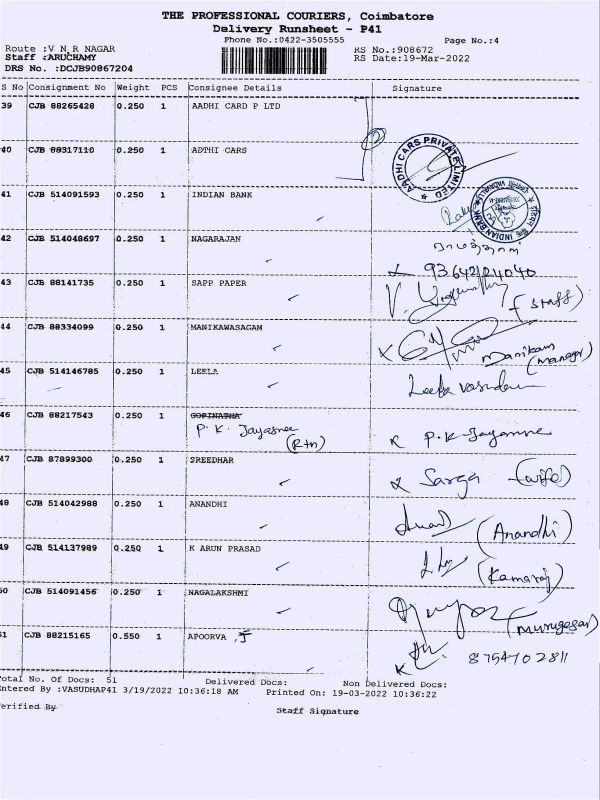 THE PROFESSIONAL COURIERS, Coimbatore
Delivery Runsheet - P41
Phone No.:0422-3505555 Page No.:4
Route :V N R NAGAR RS No.:908672
Staff :ARUCHAMY RS Date:19-Mar-2022
DRS No. :DCJB90867204
S No Consignment No Weight PCS Consignee Details Signature
39 CJB 88265428 0.250 1 AADHI CARD P LTD
40 CJB 88317110 0.250 1 ADTHI CARS
AADHI CARS PRIVATE LIMITED
41 CJB 514091593 0.250 1 INDIAN BANK
INDIAN BANK
42 CJB 514048697 0.250 1 NAGARAJAN
93642124040
43 CJB 88141735 0.250 1 SAPP PAPER
(Staff)
44 CJB 88334099 0.250 1 MANIKAWASAGAM
Manikam
(Manager)
45 CJB 514146785 0.250 1 LEELA Leela
46 CJB 88217543 0.250 1 GOPINATHA
P. K. Jayasree P.K. Jayasree
(Rtn)
47 CJB 87899300 0.250 1 SREEDHAR
Sarga (wife)
48 CJB 514042988 0.250 1 ANANDHI
(Anandhi)
49 CJB 514137989 0.250 1 K ARUN PRASAD
(Kamaraj)
50 CJB 514091456 0.250 1 NAGALAKSHMI
(Murugesan)
51 CJB 88215165 0.550 1 APOORVA .J
8754702811
Total No. Of Docs: 51 Delivered Docs: Non Delivered Docs:
Entered By :VASUDHAP41 3/19/2022 10:36:18 AM Printed On: 19-03-2022 10:36:22
Verified By Staff Signature